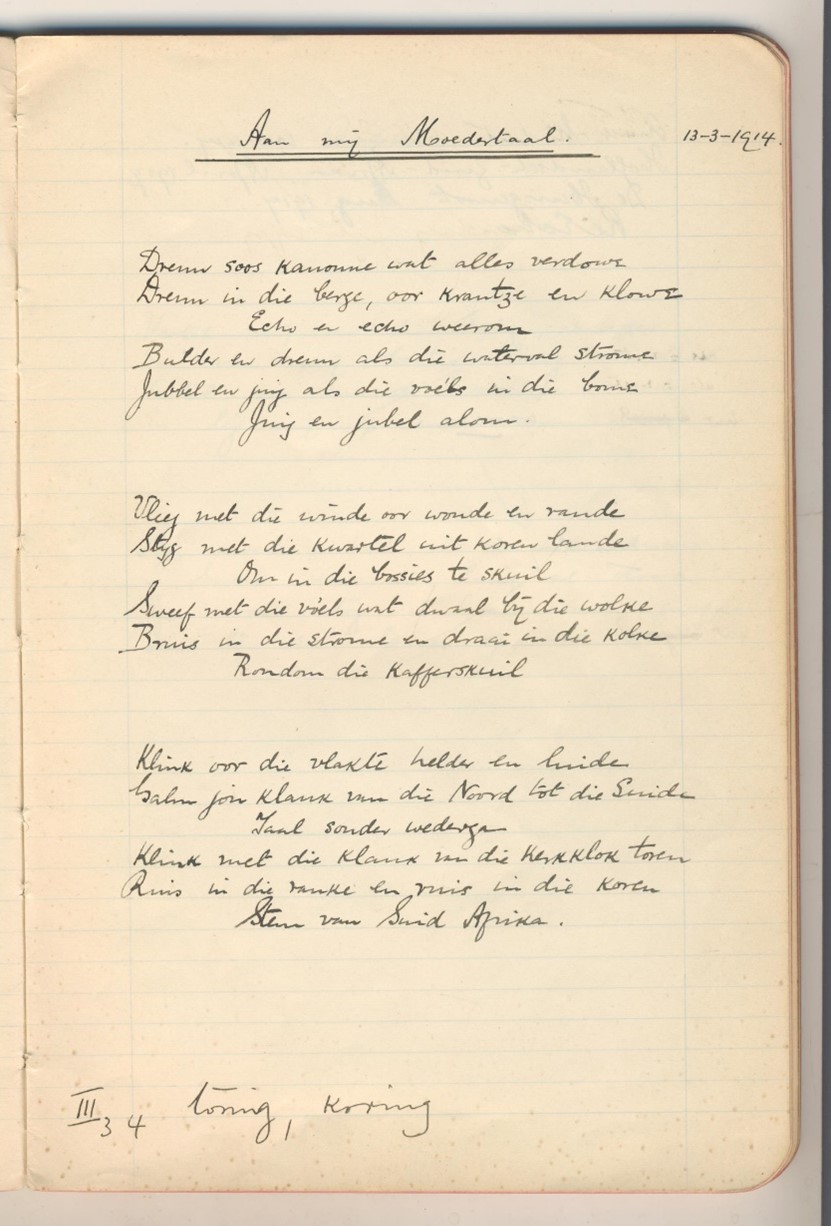 Aan mij Moedertaal. 13-3-1914.
Dreun soos kanonne wat alles verdowe
Dreun in die berge, oor krantze en klowe
Echo en echo weerom
Bulder en dreun als die waterval strome
Jubbel en juig als die voëls in die bome
Juig en jubel alom.
Vlieg met die winde oor woude en rande
Styg met die kwartel uit koren lande
Om in die bossies te skuil
Sweef met die voëls wat dwaal bij die wolke
Bruis in die strome en draai in die kolke
Rondom die Kafferskuil
Klink oor die vlakte helder en luide
Galm jou klank van die Noord tot die Suide
Taal sonder wederga
Klink met die klank van die kerkklok toren
Ruis in die ranke en ruis in die koren
Stem van Suid Afrika.
III 3 4 toring, koring